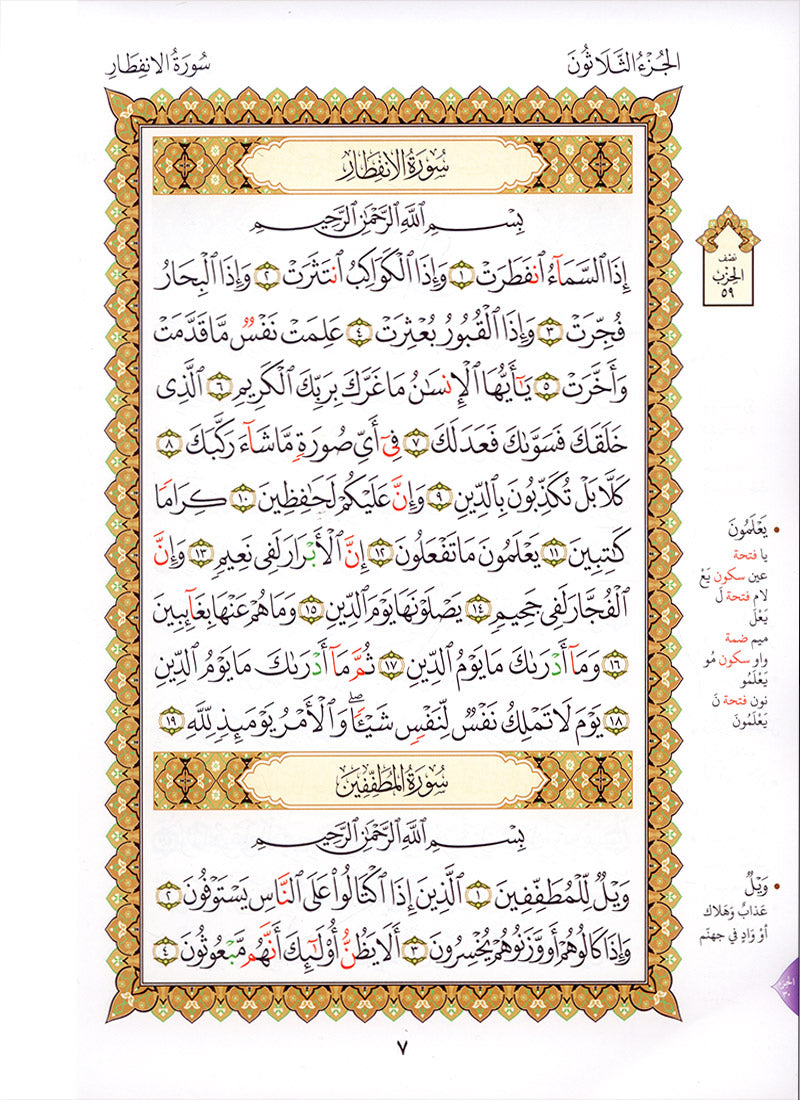 الجُزْءُ الثَّلَاثُونَ
سُورَةُ الانفِطَارِ
سُورَةُ الانفِطَارِ
بِسْمِ ٱللَّهِ ٱلرَّحْمَٰنِ ٱلرَّحِيمِ
إِذَا ٱلسَّمَآءُ ٱنفَطَرَتْ ١ وَإِذَا ٱلْكَوَاكِبُ ٱنتَثَرَتْ ٢ وَإِذَا ٱلْبِحَارُ
فُجِّرَتْ ٣ وَإِذَا ٱلْقُبُورُ بُعْثِرَتْ ٤ عَلِمَتْ نَفْسٌ مَّا قَدَّمَتْ
وَأَخَّرَتْ ٥ يَٰٓأَيُّهَا ٱلْإِنسَٰنُ مَا غَرَّكَ بِرَبِّكَ ٱلْكَرِيمِ ٦ ٱلَّذِى
خَلَقَكَ فَسَوَّىٰكَ فَعَدَلَكَ ٧ فِىٓ أَىِّ صُورَةٍ مَّا شَآءَ رَكَّبَكَ ٨
كَلَّا بَلْ تُكَذِّبُونَ بِٱلدِّينِ ٩ وَإِنَّ عَلَيْكُمْ لَحَٰفِظِينَ ١٠ كِرَامًا
كَٰتِبِينَ ١١ يَعْلَمُونَ مَا تَفْعَلُونَ ١٢ إِنَّ ٱلْأَبْرَارَ لَفِى نَعِيمٍ ١٣ وَإِنَّ
ٱلْفُجَّارَ لَفِى جَحِيمٍ ١٤ يَصْلَوْنَهَا يَوْمَ ٱلدِّينِ ١٥ وَمَا هُمْ عَنْهَا بِغَآئِبِينَ
١٦ وَمَآ أَدْرَىٰكَ مَا يَوْمُ ٱلدِّينِ ١٧ ثُمَّ مَآ أَدْرَىٰكَ مَا يَوْمُ ٱلدِّينِ
١٨ يَوْمَ لَا تَمْلِكُ نَفْسٌ لِّنَفْسٍ شَيْـًٔا ۖ وَٱلْأَمْرُ يَوْمَئِذٍ لِّلَّهِ ١٩
سُورَةُ المُطَفِّفِينَ
بِسْمِ ٱللَّهِ ٱلرَّحْمَٰنِ ٱلرَّحِيمِ
وَيْلٌ لِّلْمُطَفِّفِينَ ١ ٱلَّذِينَ إِذَا ٱكْتَالُوا۟ عَلَى ٱلنَّاسِ يَسْتَوْفُونَ ٢
وَإِذَا كَالُوهُمْ أَو وَّزَنُوهُمْ يُخْسِرُونَ ٣ أَلَا يَظُنُّ أُو۟لَٰٓئِكَ أَنَّهُم مَّبْعُوثُونَ ٤
نصف
الحِزْبِ
٥٩
يَعْلَمُونَ
يا فتحة
عين سكون يَعْ
لام فتحة لَ
يَعْلَ
ميم ضمة
واو سكون مُو
يَعْلَمُو
نون فتحة نَ
يَعْلَمُونَ
وَيْلٌ
عَذابٌ وَهَلاك
أوْ وَادٍ في جهنّم
الجزء
٣٠
٧